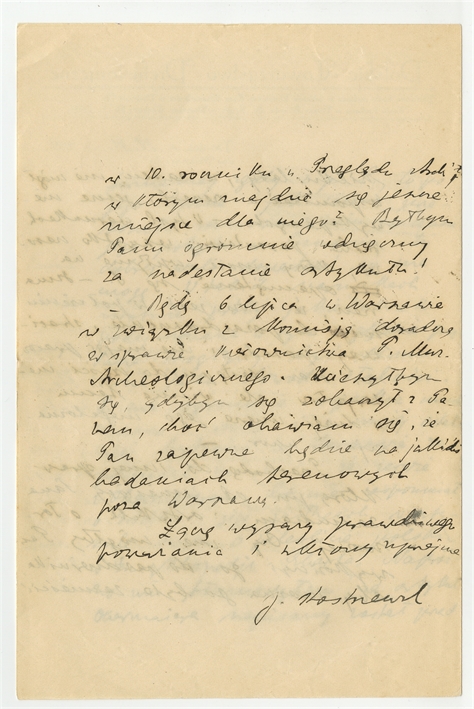 w 10. roczniku „Przeglądu Arch."?
w którym znajdzie się jeszcze
miejsce dla niego? Byłbym
Panu ogromnie wdzięczny
za nadesłanie artykułu!
– Będę 6 lipca w Warszawie
w związku z Komisją doradczą
w sprawie kierownictwa P. Muz.
Archeologicznego. Ucieszyłbym
się, gdybym się zobaczył z Pa-
nem, choć obawiam się, że
Pan zapewne będzie na jakichś
badaniach terenowych
poza Warszawą.
Łączę wyrazy prawdziwego
poważania i ukłony uprzejme
J. Kostrzewski